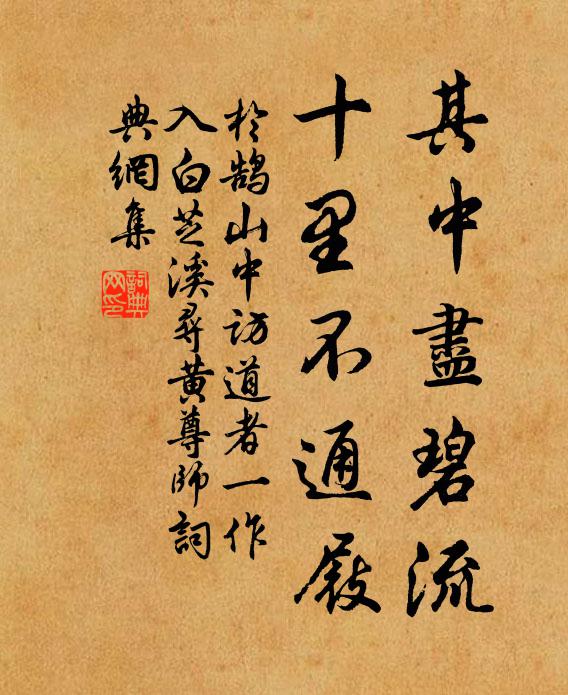 其中盡碧流
十里不通屐
於鵠山中訪道者一作
入白芝溪尋黃尊師詞
典網集
詞典
网印